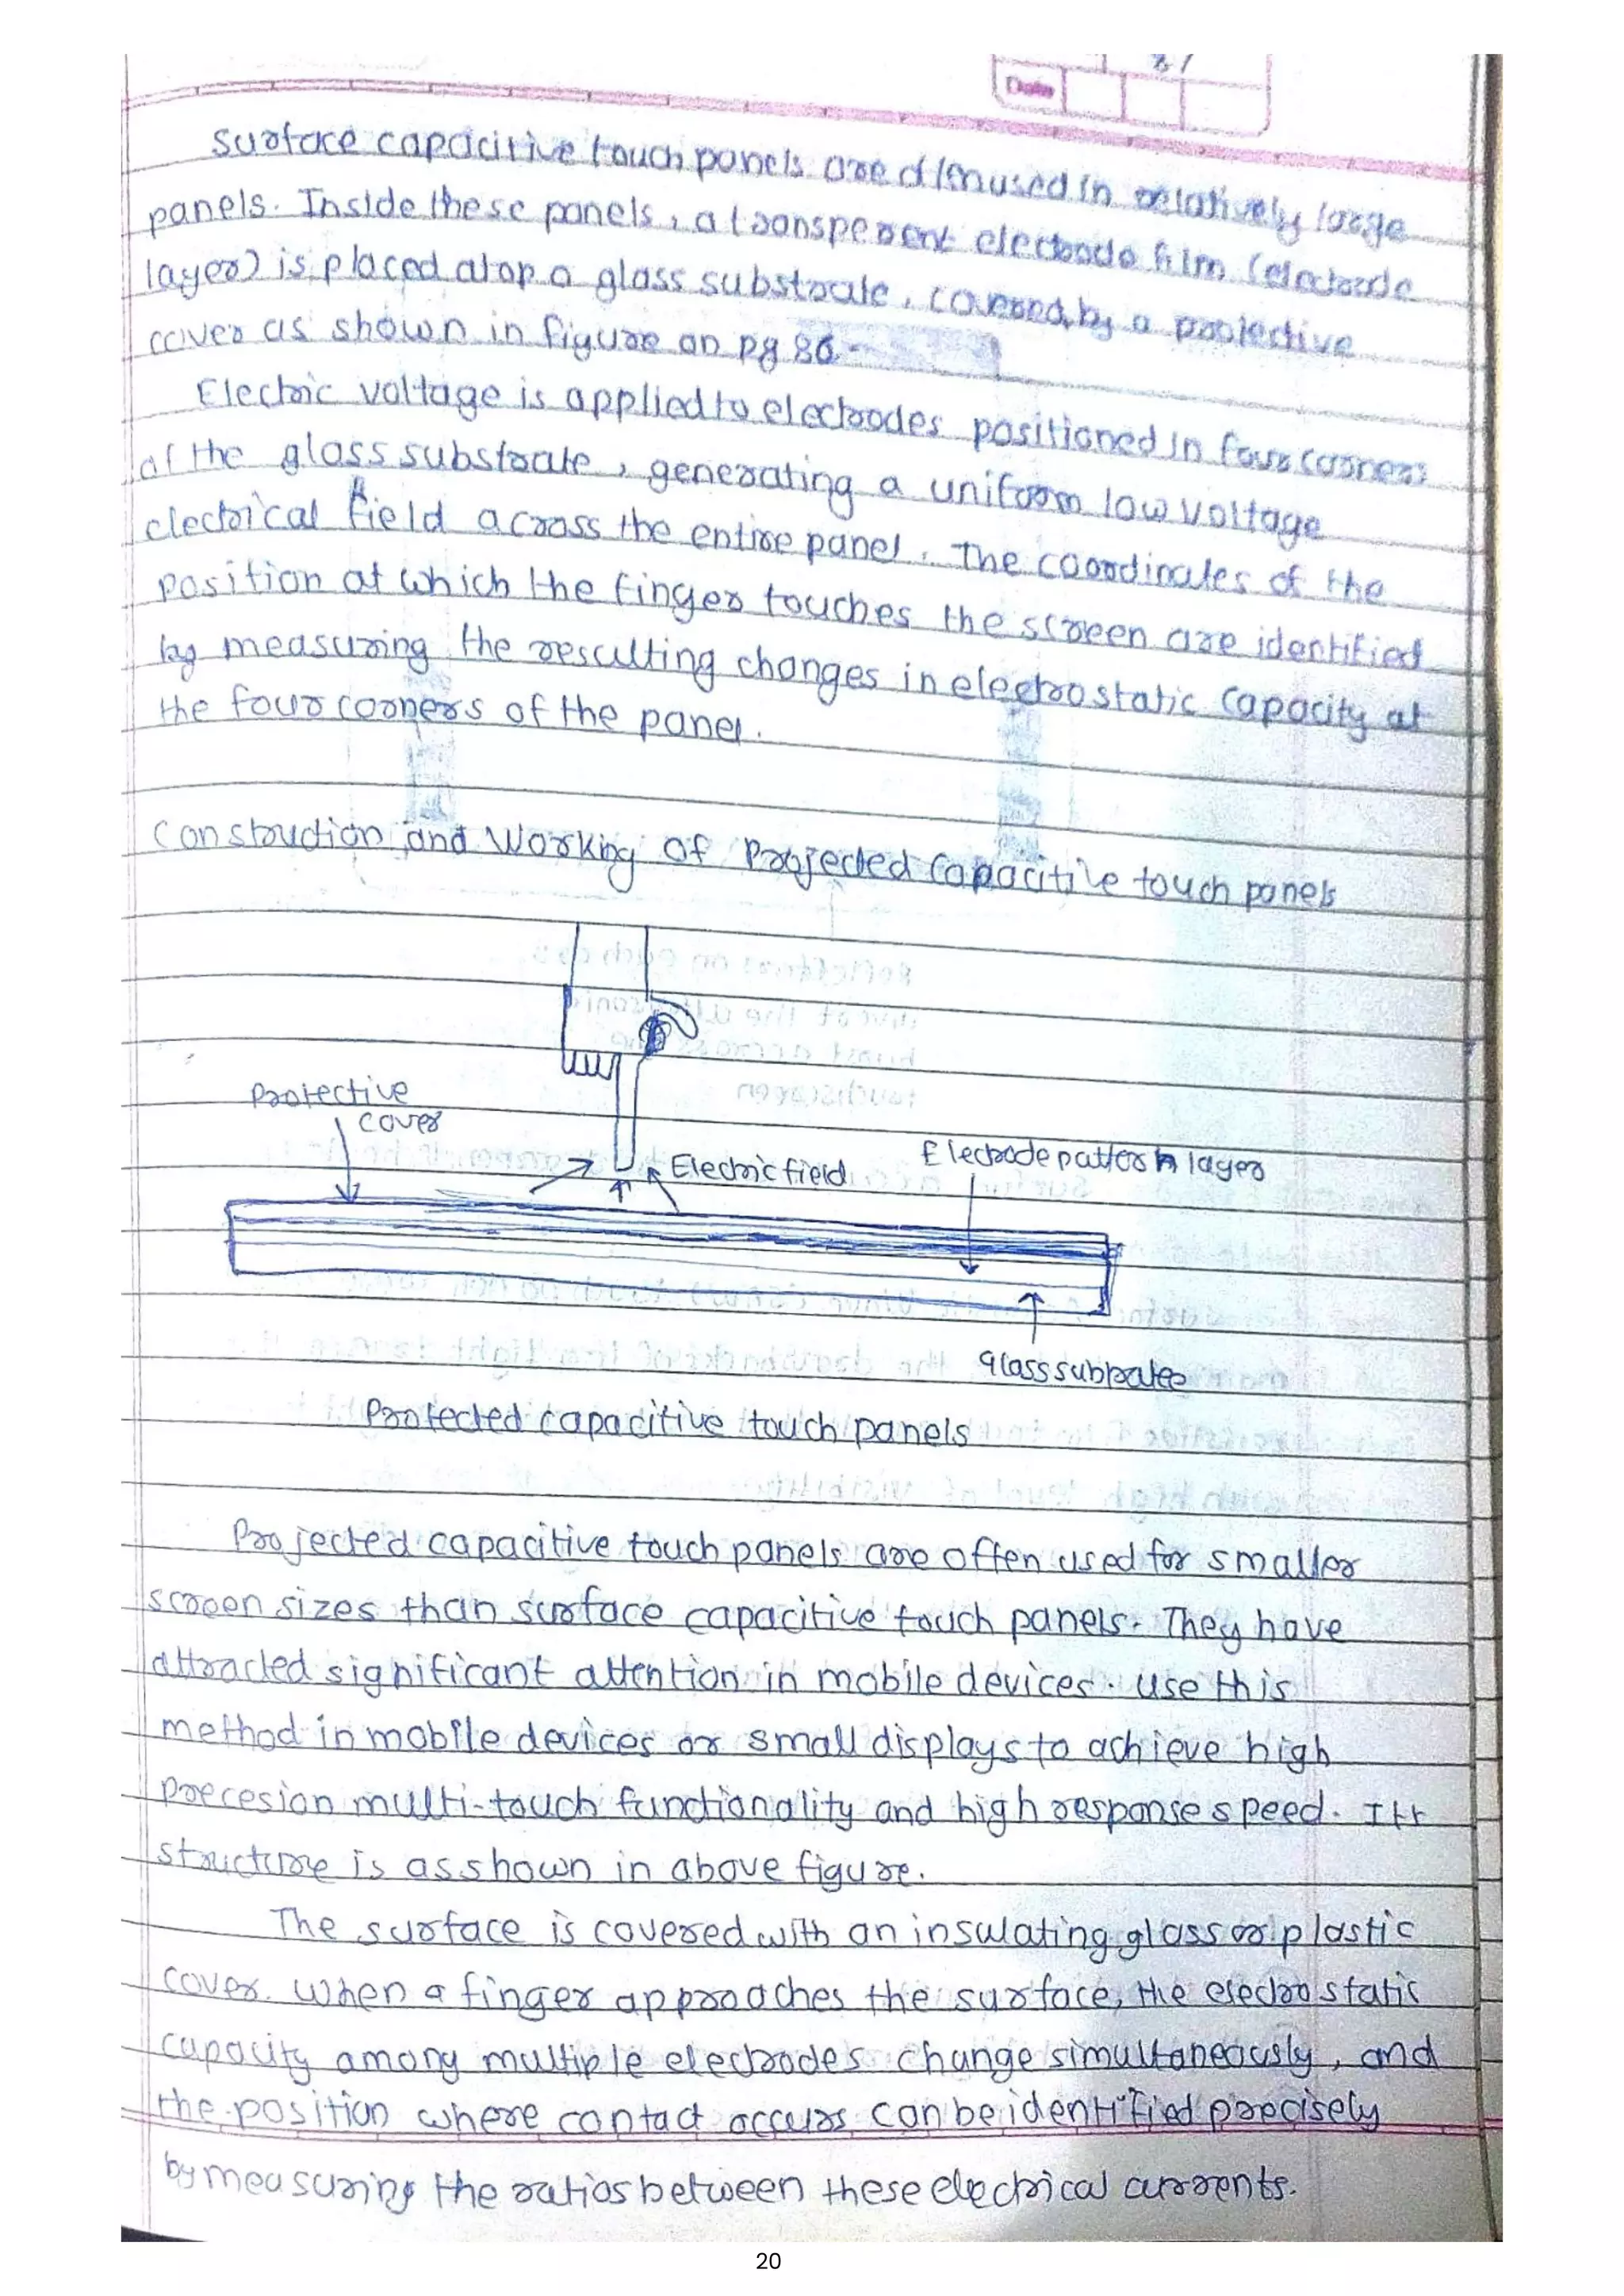 Date
Surface capacitive touch panels are often used in relatively large
panels. Inside these panels, a transperent electrode film (electrode
layer) is placed atop a glass substrate, covered by a protective
cover as shown in figure on pg 86
Electric voltage is applied to electrodes positioned in four corners
of the glass substrate, generating a uniform low voltage
electrical field across the entire panel. The coordinates of the
position at which the finger touches the screen are identified
by measuring the resulting changes in electrostatic capacity at
the four corners of the panel.
Construction and Working of Projected Capacitive touch panels
Protective
cover
Electric field
Electrode pattern layer
Glass subrate
Protected capacitive touch panels
Projected capacitive touch panels are often used for smaller
screen sizes than surface capacitive touch panels. They have
attracted significant attention in mobile devices. Use this
method in mobile devices or small displays to achieve high
precesion multi-touch functionality and high response speed. Its
structure is as shown in above figure.
The surface is covered with an insulating glass or plastic
cover. When a finger approaches the surface, the electrostatic
capacity among multiple electrodes change simultaneously, and
the position where contact occurs can be identified precisely
by measuring the ratios between these electrical currents.
20